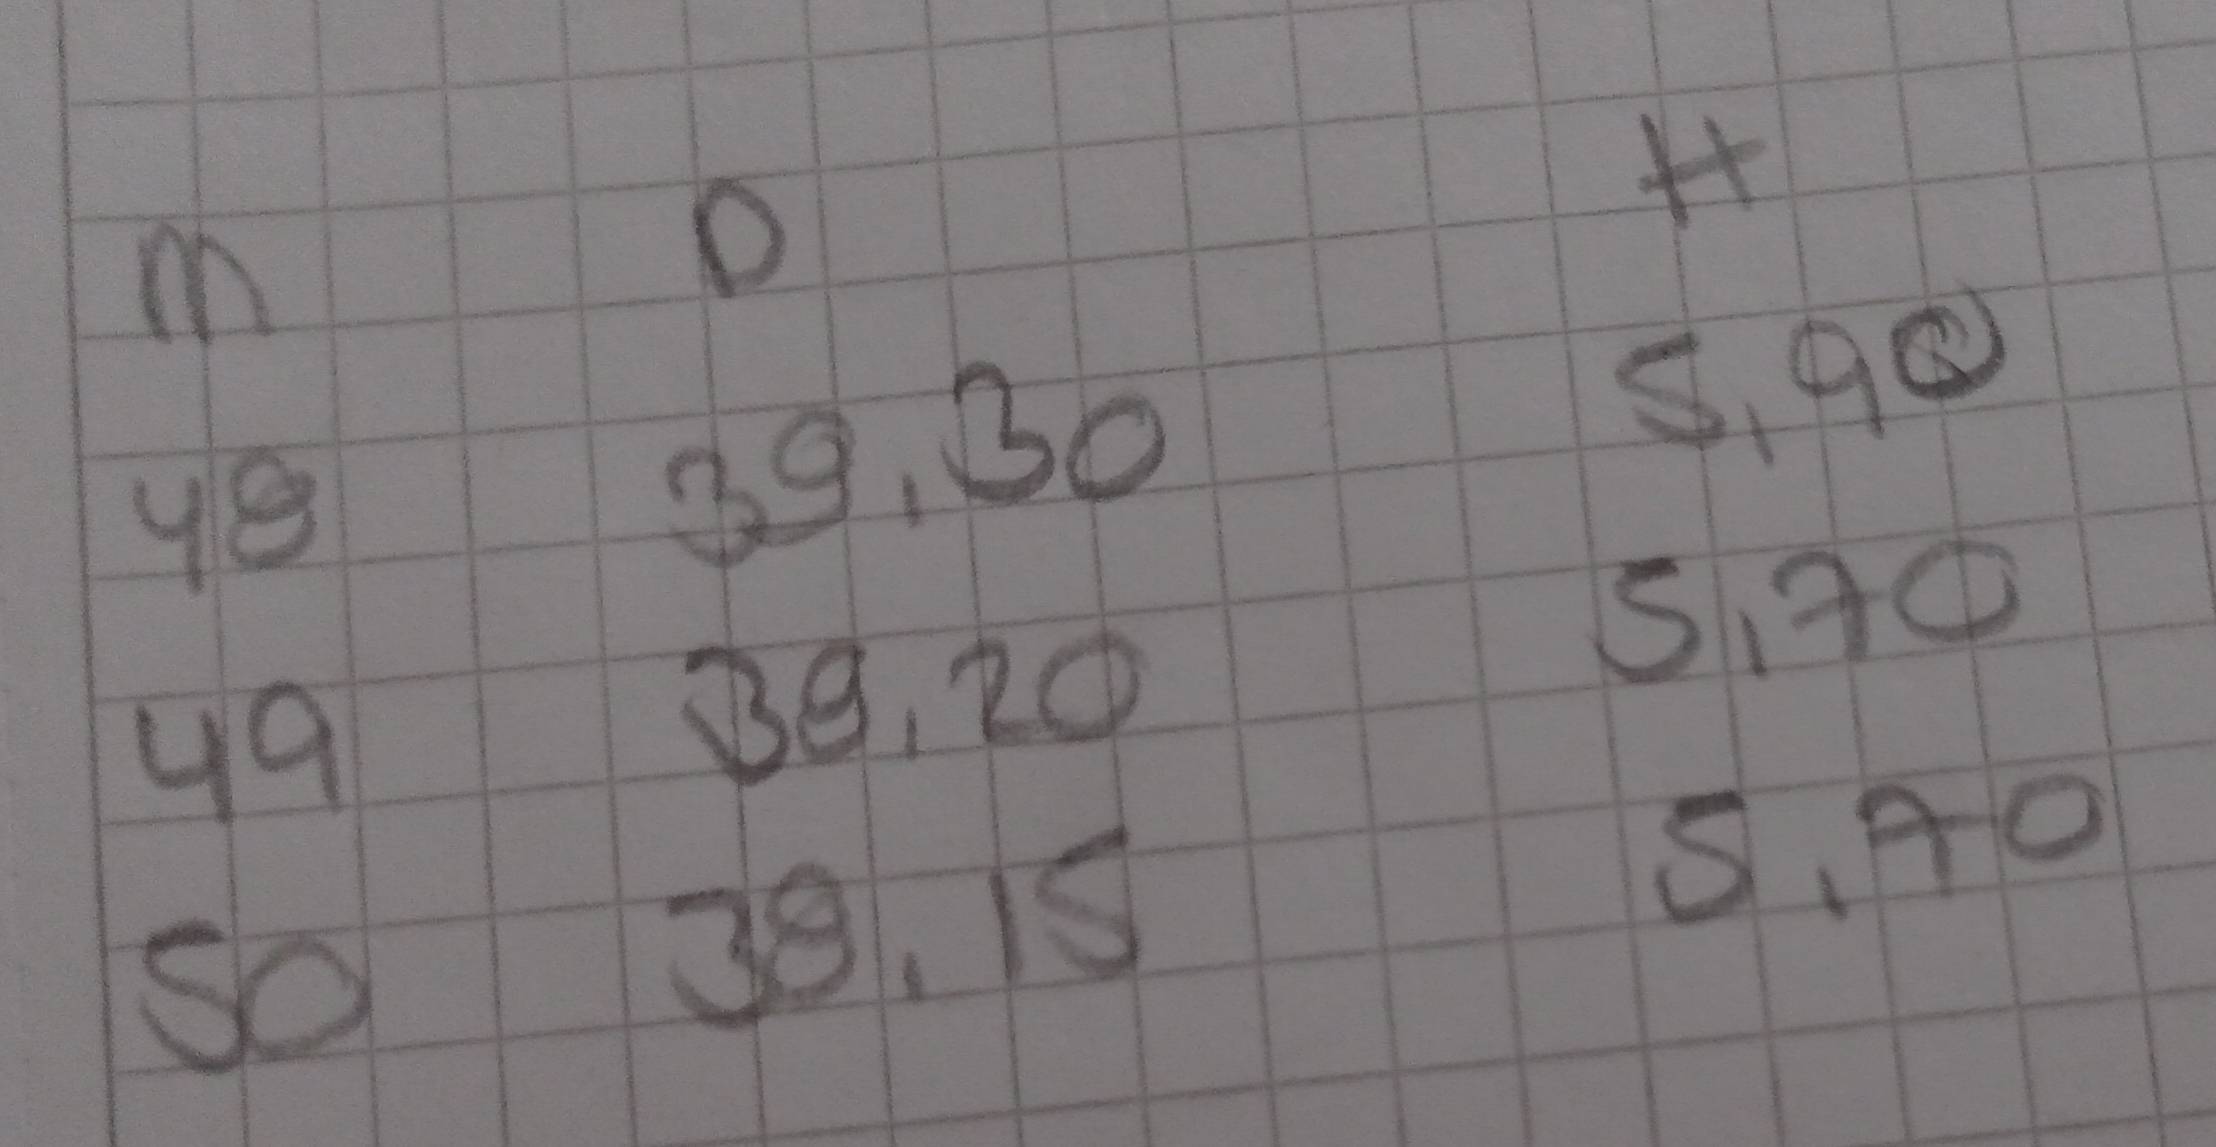 M D H
48 39,30 5,90
49 39,20 5,70
50 39,15 5,70